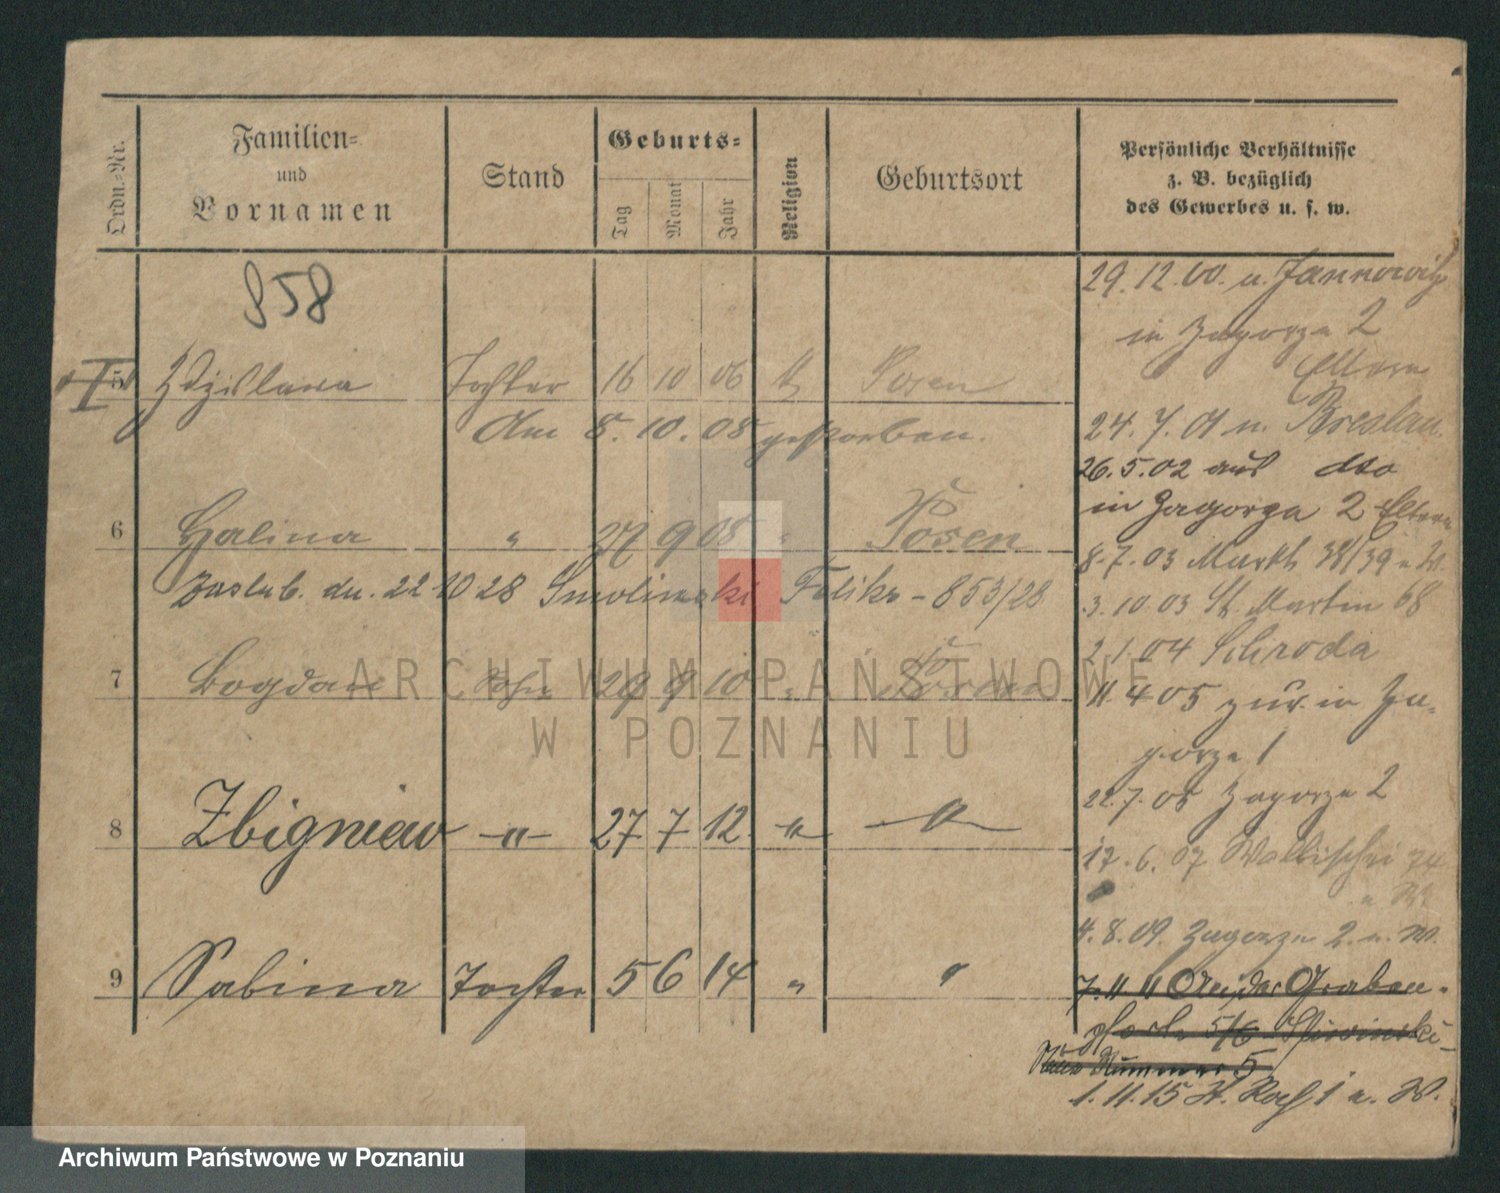 Ordn.-Nr.
Familien-
und
Vornamen
Stand
Geburts-
Tag
Monat
Jahr
Religion
Geburtsort
Persönliche Verhältnisse
z. B. bezüglich
des Gewerbes u. s. w.
858
5 Zdzislawa Tochter 16 10 06 Posen
Am 8. 10. 08 gestorben.
6 Halina " 27 9 08 " Posen
Zaslub. dn. 22 10 28 Smolinski Feliks - 853/28
7 Bogdan Sohn 29 9 10 " Posen
8 Zbigniew -"- 27 7 12 -"-
9 Sabina Tochter 5 6 14 " "
29.12.00. n. Jannowitz
in Zagorze 2
Eltern
24.7.01 n. Breslau.
26.5.02 aus dto
in Zagorze 2 Eltern
8.7.03 Markt 38/39 n. W.
3.10.03 St. Martin 68
2.1.04 Schroda
11.4 05 zur. in Za-
gorze 1
22.7.05 Zagorze 2
17.6.07 Wallischei 74
4.8.09. Zagorze 2. n. W.
7.11 11 An der Graben-
5/6
Neue Nummer 5
1.11.15 1 n. W.
ARCHIWUM PAŃSTWOWE
W POZNANIU
Archiwum Państwowe w Poznaniu